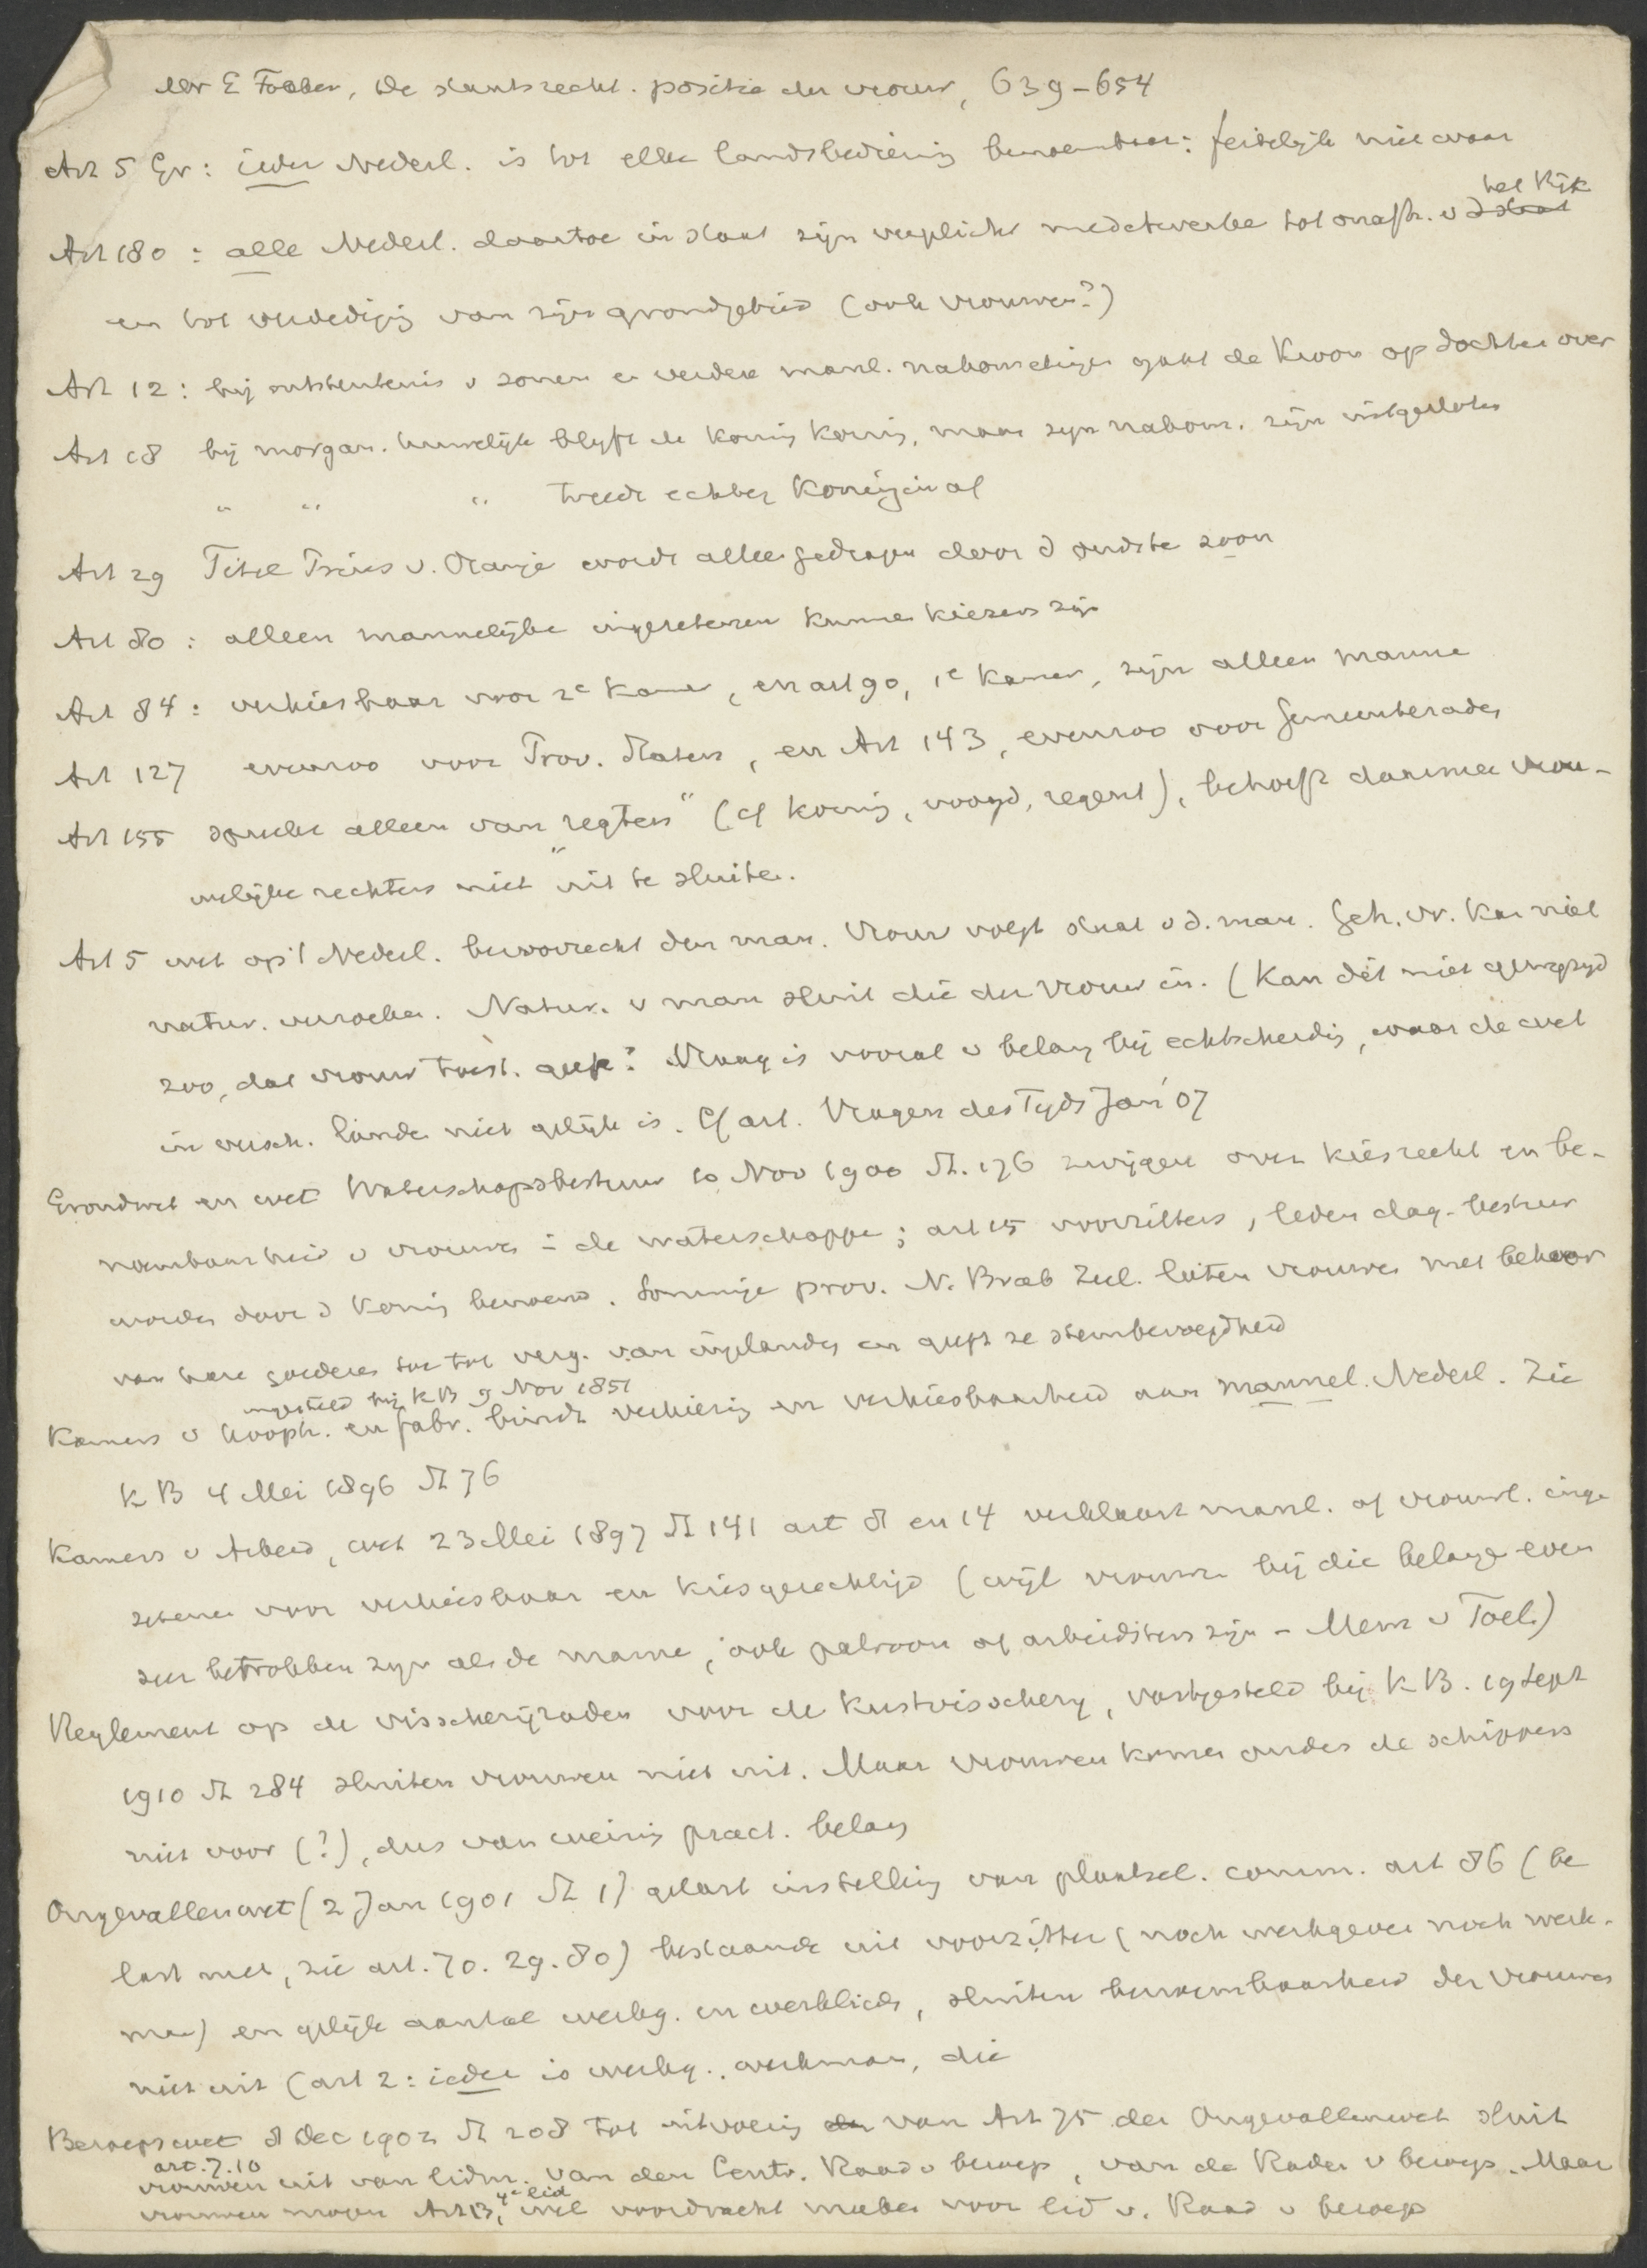 Mr E Faber, De staatsrecht. positie der vrouw, 639-654
Art 5 Gr: ieder Nederl. is tot elke landsbediening benoembaar: feitelijk niet waar
het Rijk
Art 180: alle Nederl. daartoe in staat zijn verplicht medetewerke tot onafh. v d staat
en tot verdediging van zijn grondgebied (ook vrouwen?)
Art 12: bij ontstentenis v zonen en verdere manl. nakomelingen gaat de Kroon op dochter over
Art 18 bij morgan. huwelijk blyft de Koning Koning, maar zyn nakom. zijn uitgesloten
" " " treedt echter Koningin af
Art 29 Titel Prins v. Oranje wordt alleen gedragen door d oudste zoon
Art 80: alleen mannelijke ingezetenen kunnen kiezers zijn
Art 84: verkiesbaar voor 2e Kamer, en art 90, 1e Kamer, zijn alleen manne
Art 127 evenzoo voor Prov. Staten, en Art 143, evenzoo voor gemeenterade,
Art 155 spreekt alleen van „regters" (cf koning, voogd, regent), behoeft daarmee vrou-
welijke rechters niet uit te sluiten.
Art 5 wet op 't Nederl. burgerrecht der man. Vrouw volgt staat v d. man. Geh. vr. kan niet
natur. verzoeken. Natur. v man sluit die der vrouw in. (Kan dit niet gewyzigd
zoo, dat vrouw toest. geeft? Vraag is vooral v belang bij echtscheiding, waar de wet
in versch. landen niet gelijk is. Cf art. Vragen des Tyds Jan '07
Grondwet en wet Waterschapsbestuur 10 Nov 1900 St. 176 zwijgen over kiesrecht en be-
noembaarheid v vrouwen in de waterschappe; art 15 voorzitters, leden dag. bestuur
worden door d Koning benoemd. Sommige prov. N. Brab Zeel. laten vrouwen met behoor
van hare goederen toe tot verg. van ingelanden en geeft ze stembevoegdheid
ingesteld bij KB 9 Nov 1851
Kamers v Kooph. en fabr. bindt verkiezing en verkiesbaarheid aan mannel. Nederl. Zie
KB 4 Mei 1896 St 76
Kamers v Arbeid, wet 23 Mei 1897 St 141 art 8 en 14 verklaart manl. of vrouwl. inge
zetenen voor verkiesbaar en kiesgerechtigd (wijl vrouwen bij die belange even
zeer betrokken zyn als de manne, ook patroon of arbeidsters zijn - Mem v Toel.)
Reglement op de visscherijraden voor de Kustvisschery, vastgesteld bij KB. 19 Sept
1910 St 284 sluiten vrouwen niet uit. Maar vrouwen komen onder de schippers
niet voor (?), dus van weinig pract. belang
Ongevallenwet (2 Jan 1901 St 1) gelast instelling van plaatsel. comm. art 86 (be
last met, zie art. 70. 29. 80) bestaande uit voorzitter (noch werkgever noch werk-
man) en gelijk aantal werkg. en werklieden, sluiten benoembaarheid der vrouwen
niet uit (art 2: ieder is werkg., werkman, die
Beroepswet 8 Dec 1902 St 208 tot uitvoering van Art 75 der Ongevallenwet sluit
art. 7. 10
vrouwen uit van lidm. van den Centr. Raad v beroep, van de Raden v beroep. Maar
4e lid
vrouwen mogen Art 13, wel voordracht maken voor lid v. Raad v beroep